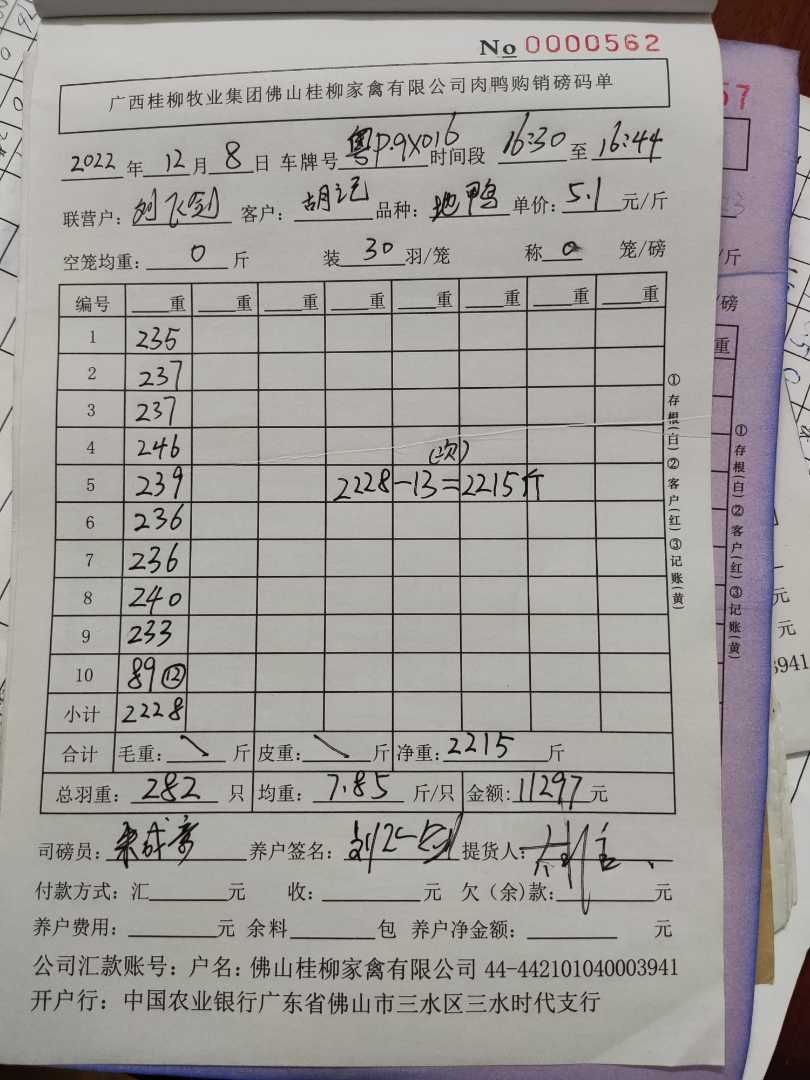 No 0000562
广西桂柳牧业集团佛山桂柳家禽有限公司肉鸭购销磅码单
2022年12月8日 车牌号粤P.9X016时间段 16:30至16:44
联营户：刘飞剑 客户：胡 品种：地鸭 单价：5.1元/斤
空笼均重：0斤 装30羽/笼 称0笼/磅
编号 重 重 重 重 重 重 重 重
1 235
2 237
3 237
4 246
(次)
5 239 2228-13=2215斤
6 236
7 236
8 240
9 233
10 89⑫
小计 2228
合计 毛重：\斤 皮重：\斤 净重：2215斤
总羽重：282只 均重：7.85斤/只 金额：11297元
司磅员： 养户签名： 提货人：
付款方式：汇 元 收： 元 欠（余）款： 元
养户费用： 元 余料 包 养户净金额： 元
公司汇款账号：户名：佛山桂柳家禽有限公司 44-442101040003941
开户行：中国农业银行广东省佛山市三水区三水时代支行
①存根(白)②客户(红)③记账(黄)
57
/斤
/磅
重
①存根(白)②客户(红)③记账(黄)
元
元
3941